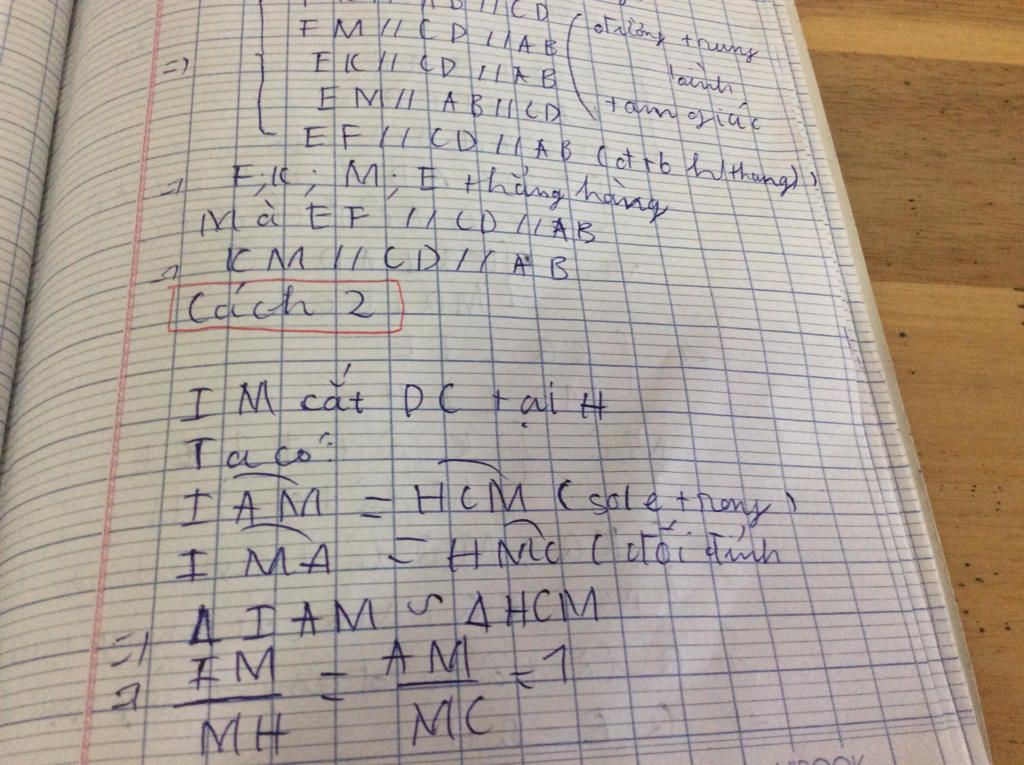 AB // CD
FM // CD // AB (đường trung
=> EK // CD // AB bình
EM // AB // CD tam giác
EF // CD // AB (đtb h/thang)
=> F; K; M; E thẳng hàng
Mà EF // CD // AB
=> KM // CD // AB
Cách 2
IM cắt DC tại H
Ta có:
IAM = HCM (sole trong)
IMA = HMC (đối đỉnh
=> Δ IAM ∽ Δ HCM
=> IM/MH = AM/MC = 1